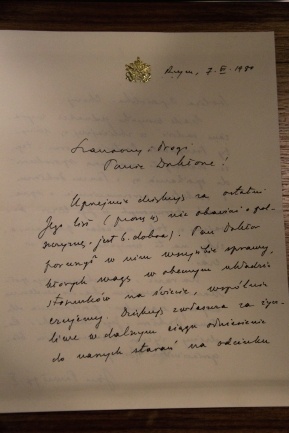 Rzym, 7. XI - 1980
Szanowny i Drogi
Panie Doktorze!
Uprzejmie dziękuję za ostatni
Jego list (proszę się nie obawiać o pol-
szczyznę, jest b. dobra). Pan Doktor
poruszył w nim wszystkie sprawy,
których wagę w obecnym układzie
stosunków na świecie, wspólnie
czujemy. Dziękuję zwłaszcza za życz-
liwe w dalszym ciągu odniesienie
do naszych starań na odcinku